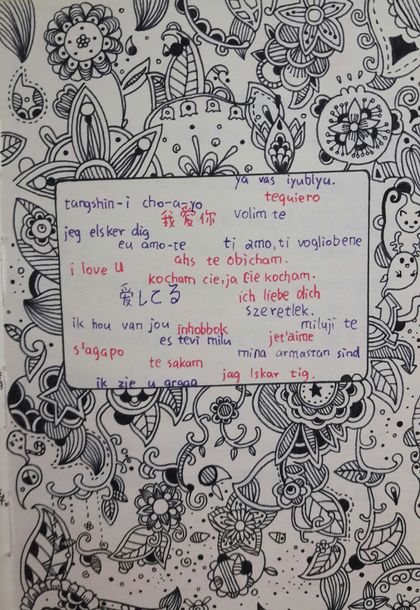 ya vas iyublyu.
tangshin-i cho-a-yo
tequiero
我爱你
volim te
jeg elsker dig
eu amo-te
ti amo, ti vogliobene
ahs te obicham.
i love u
kocham cie, ja Cie kocham.
愛してる
ich liebe dich
szeretlek.
ik hou van jou
inhobbok
miluji te
es tevi milu
jet'aime
s'agapo
mina armastan sind
te sakam
jag lskar tig.
ik zie u graag